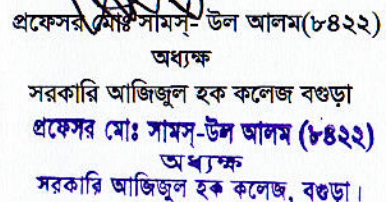 প্রফেসর মোঃ সামস্- উল আলম(৮৪২২)
অধ্যক্ষ
সরকারি আজিজুল হক কলেজ বগুড়া
প্রফেসর মোঃ সামস্-উল আলম (৮৪২২)
অধ্যক্ষ
সরকারি আজিজুল হক কলেজ, বগুড়া।